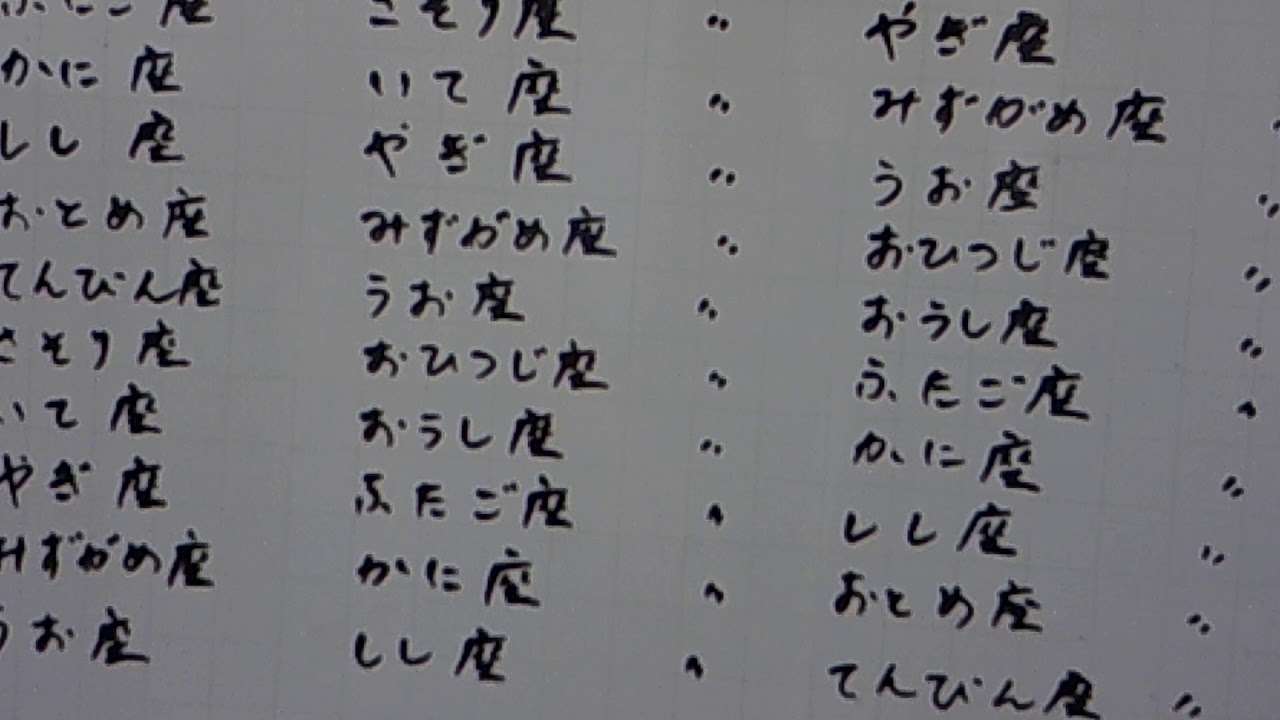 ふたご座 さそり座 〃 やぎ座
かに座 いて座 〃 みずがめ座 〃
しし座 やぎ座 〃 うお座 〃
おとめ座 みずがめ座 〃 おひつじ座 〃
てんびん座 うお座 〃 おうし座 〃
さそり座 おひつじ座 〃 ふたご座 〃
いて座 おうし座 〃 かに座 〃
やぎ座 ふたご座 〃 しし座 〃
みずがめ座 かに座 〃 おとめ座 〃
うお座 しし座 〃 てんびん座 〃